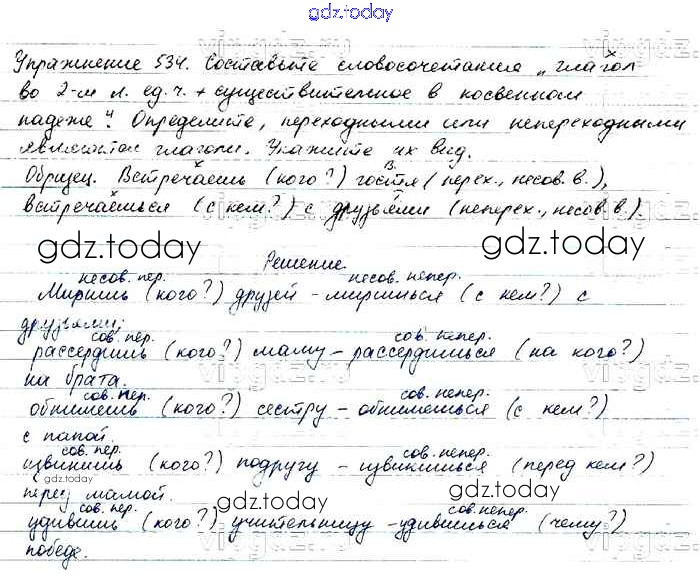 gdz.today
Упражнение 534. Составьте словосочетания „глагол
во 2-м л. ед. ч. + существительное в косвенном
падеже“. Определите, переходными или непереходными
являются глаголы. Укажите их вид.
Образец. Встречаешь (кого?) гостя (перех., несов. в.),
встречаешься (с кем?) с друзьями (неперех., несов. в.).
gdz.today gdz.today
Решение
несов. пер. несов. непер.
Миришь (кого?) друзей - миришься (с кем?) с
друзьями;
сов. пер. сов. непер.
рассердишь (кого?) маму - рассердишься (на кого?)
на брата.
сов. пер. сов. непер.
обнимешь (кого?) сестру - обнимешься (с кем?)
с папой.
сов. пер. сов. непер.
извинишь (кого?) подругу - извинишься (перед кем?)
перед мамой.
gdz.today gdz.today gdz.today
сов. пер. сов. непер.
удивишь (кого?) учительницу - удивишься (чему?)
победе.